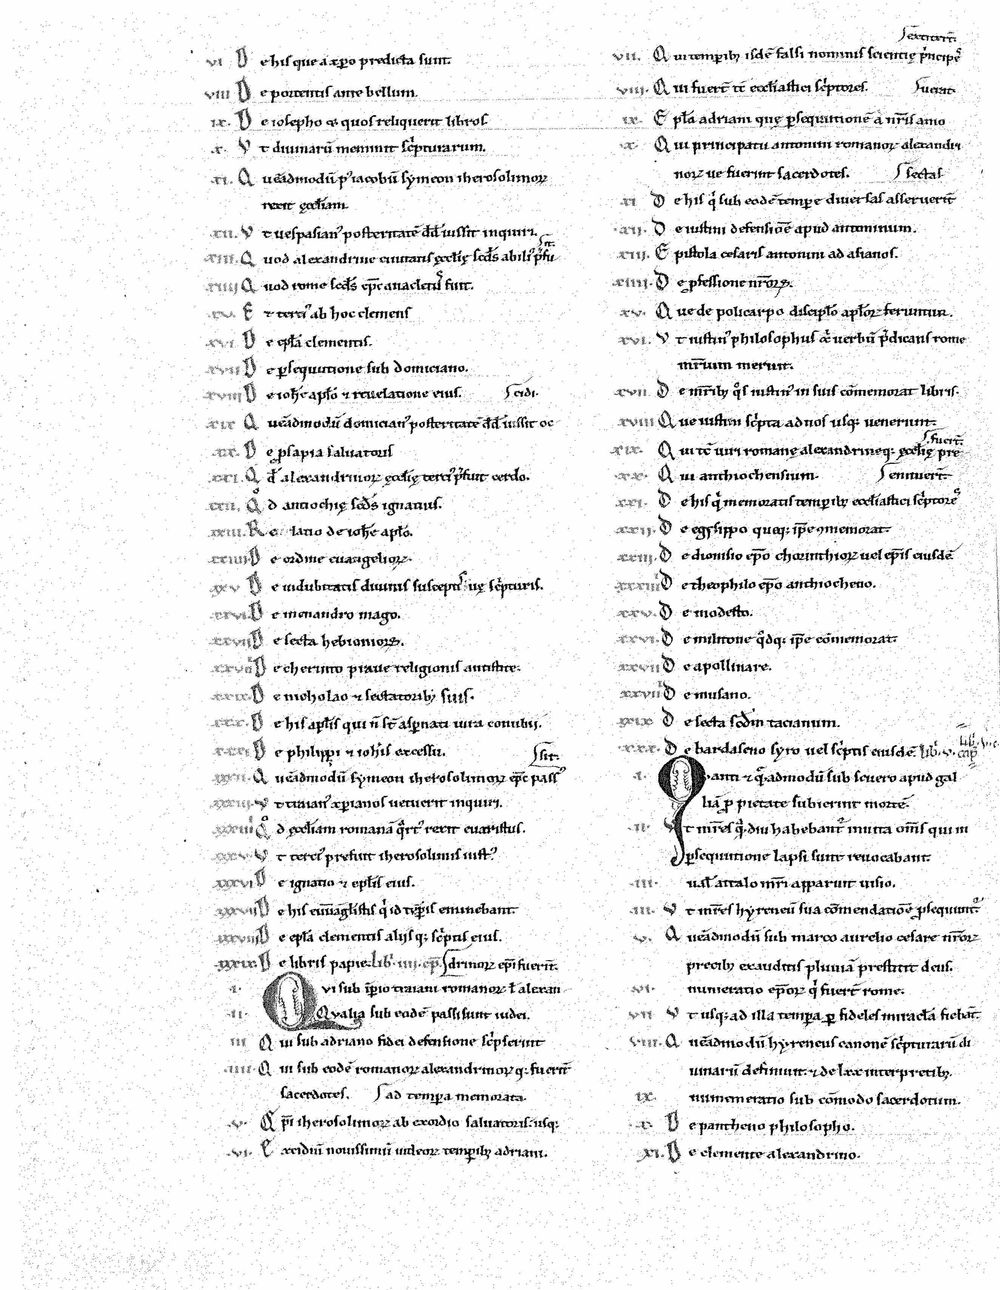 vi D e his que a xp̄o predicta sunt.
viii D e portentis ante bellum.
ix. D e iosepho & quos reliquerit libros
x. V t diuinarū meminit sc̄pturarum.
xi. Q uēadmodū p' iacobū symeon iherosolimoꝝ
rexit ęcc̄liam.
xii. V t uespasian' posteritatē dd̄ iussit inquiri.
xiii. Q uod alexandrine ciuitatis ęcc̄lię sc̄ds abili' p̄fu
it.
xiiii Q uod rome sc̄ds ep̄c anacletus fuit.
xv. E t terci' ab hoc clemens
xvi. D e ep̄la clementis.
xvii D e ꝑsequutione sub domiciano.
xviii D e ioh̄e apl̄o & reuelatione eius.
xix Q uēadmodū domician' posteritatē dd̄ iussit oc
cidi.
xx. D e ꝓsapia saluatoris
xxi. Q d̄ alexandrinoꝝ ęcc̄lię terci' p̄fuit cerdo.
xxii. Q d antiochię sc̄ds ignatius.
xxiii. R elatio de ioh̄e apl̄o.
xxiiii D e ordine euangelioꝝ.
xxv D e indubitatis diuinis
xxvi. D e menandro mago.
xxvii D e secta hebionioꝝ.
xxviii D e cherinto praue religionis antistite.
xxix. D e nicholao & sectatorib; suis.
xxx. D e his apl̄is qui n̄ st̄ asp̄nati iura conubii.
xxxi D e philippi & ioh̄is excessu.
xxxii. Q uēadmodū symeon iherosolimoꝝ ep̄c pass'
sit.
xxxiii V t traian' xp̄ianos uetuerit inquiri.
xxxiiii Q d ęcc̄liam romanā q̄rt' rexit euaristus.
xxxv V t terci' prefuit iherosolimis iust'
xxxvi D e ignatio & ep̄lis eius.
xxxvii D e his euuāglistis q' id tēp̄is eminebant.
xxxviii D e ep̄la clementis aliisq; sc̄ptis eius.
xxxix. D e libris papie. lib' iiii. cap̄.
i. Q vi sub īp̄io traiani romanoꝝ t̄ alexan
drinoꝝ ep̄i fuerit̄.
ii. Qualia sub eodē passi sunt iudei.
iii Q ui sub adriano fidei defensione sc̄pserint
iiii. Q ui sub eodē romanoꝝ alexandrinoꝝq; fuerīt
sacerdotes. ad temp̄a memorata.
v. Q p̄i iherosolimoꝝ ab exordio saluatoris usq;
vi. E xcidiū nouissimū iudeoꝝ temporib; adriani.
vii. Q ui temporib; isdē falsi nominis scientię p̄ncipes
extiterīt.
viii. Q ui fuerīt tc̄ eccl̄iastici sc̄ptores.
ix. E pl̄a adriani quę ꝑsequutionē a nr̄is amo
uerat.
x. Q ui principatu antonini romanoꝝ alexandri
noꝝ ue fuerint sacerdotes.
xi D e his q' sub eodē tempore diuersas asseruerīt
sectas.
xii. D e iustini defensiōe apud antoninum.
xiii E pistola cesaris antonini ad asianos.
xiiii D e ꝓfessione nr̄oꝝ.
xv. Q ue de policarpo discipl̄o apl̄oꝝ feruntur.
xvi. V t iustin' philosophus xp̄i uerbū p̄dicans rome
mr̄ium meruit.
xvii. D e mr̄ib; q's iustin' in suis cōmemorat libris.
xviii Q ue iustini sc̄pta ad nos usq; uenerunt.
xix. Q ui tc̄ uiri romanę alexandrineq; ęcc̄lię pre
fuerīt.
xx. Q ui anthiochensium.
xxi. D e his q' memoratis temporib; eccl̄iastici sc̄ptores
enituerīt.
xxii D e egysippo queq; ip̄e ꝯmemorat.
xxiii. D e dionisio ep̄o chorinthioꝝ uel ep̄is eiusdē
xxiiii D e theophilo ep̄o anthiocheno.
xxv. D e modesto.
xxvi. D e militone q'dq; ip̄e cōmemorat.
xxvii D e apollinare.
xxviii D e musano.
xxix D e secta sc̄dm tacianum.
xxx. D e bardaseno syro uel sc̄ptis eiusdē lib̄. v. cap̄
i. Q uanti & q̄admodū sub seuero apud gal
liā ꝓ pietate subierint mortē.
ii. V t mr̄es q̄diu habebant' intra om̄s qui in
ꝑsequutione lapsi sunt reuocabant.
iii. ual̄ attalo mr̄i apparuit uisio.
iiii. V t mr̄es hyreneū sua cōmendatiōe ꝓsequunt'.
v. Q uēadmodū sub marco aurelio cesare nr̄oꝝ
precib; exauditis pluuiā prestitit deus.
vi. numeratio ep̄oꝝ q' fuerīt rome.
vii V t usq; ad illa temp̄a ꝑ fideles miracla fiebāt.
viii. Q uēadmodū hyreneus canonē sc̄pturarū di
uinarū definiuit. & de lxx interpretib;
ix. numeneratio sub cōmodo sacerdotum.
x. D e pantheno philosopho.
xi. D e clemente alexandrino.